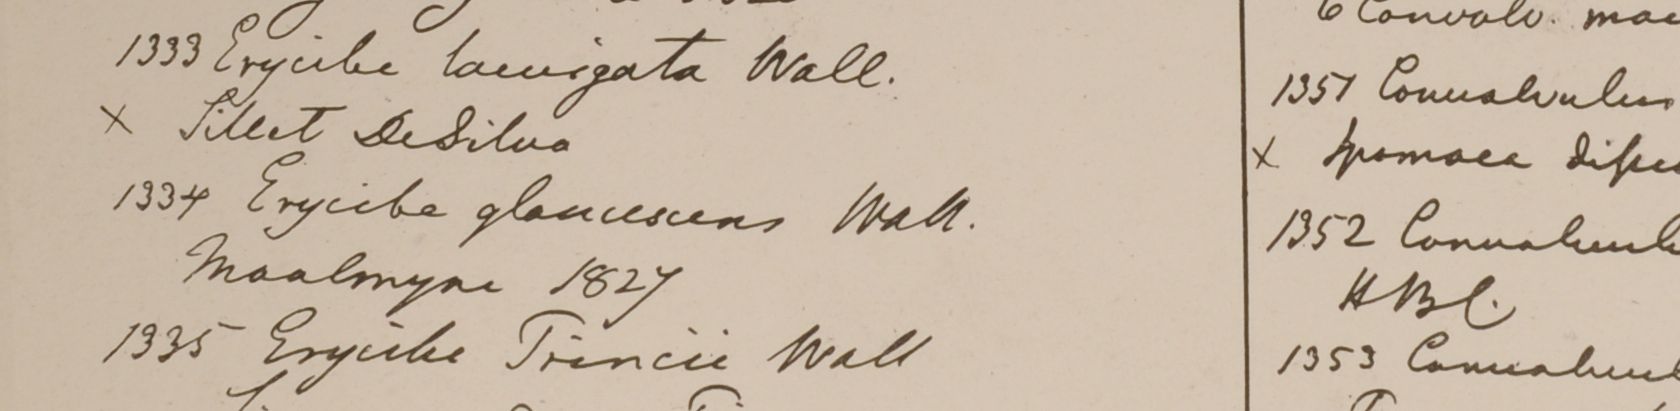 1333 Erycibe laevigata Wall.
× Sillet DeSilva
1334 Erycibe glaucescens Wall.
Moalmyne 1827
1335 Erycibe Princii Wall
6 Convolv.
1351 Convolvulus
× Ipomaea
1352 Convolvul
HBC.
1353 Convolvul